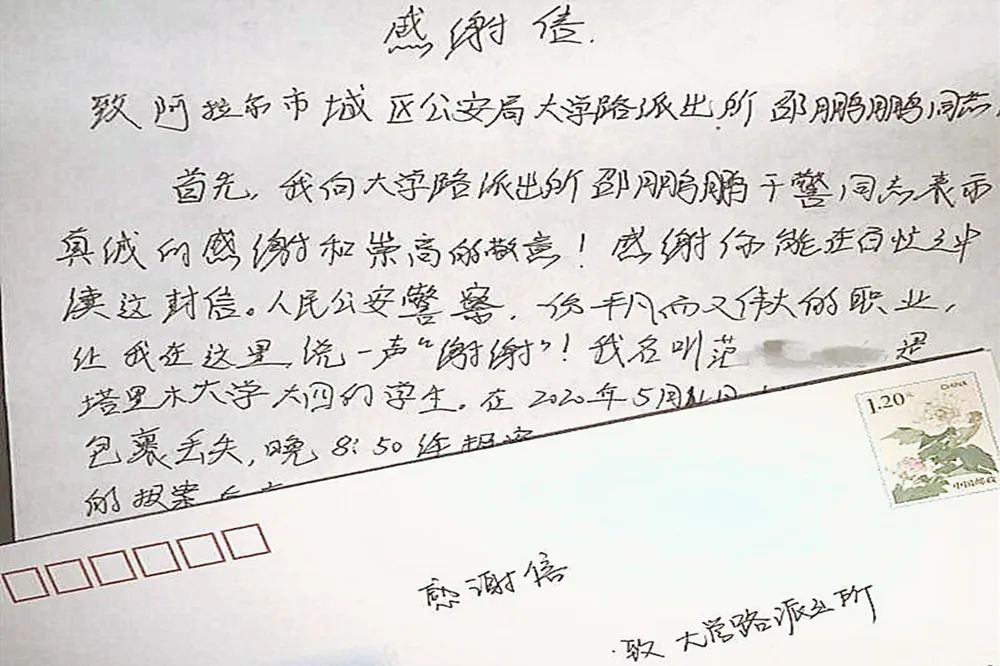 感谢信.
致阿拉尔市城区公安局大学路派出所邵鹏鹏同志,
首先,我向大学路派出所邵鹏鹏干警同志表示
真诚的感谢和崇高的敬意!感谢你能在百忙之中
读这封信。人民公安警察,你平凡而又伟大的职业,
让我在这里说一声“谢谢”!我名叫范 是
塔里木大学大四的学生。在2020年5月
包裹丢失,晚8:50
的报案
CHINA
1.20元
中国邮政
感谢信
致大学路派出所